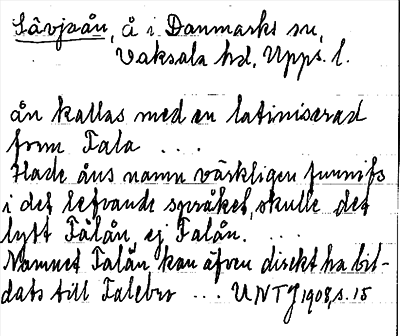 Sävjaån, å i Danmarks sn,
Vaksala hd, Upps. l.
ån kallas med en latiniserad
form Fala ...
Hade åns namn värkligen funnits
i det lefvande språket, skulle det
lytt Fålån, ej Falån. ...
Namnet Falån kan äfven direkt ha bil-
dats till Falebro ... UNTJ 1908, s. 15